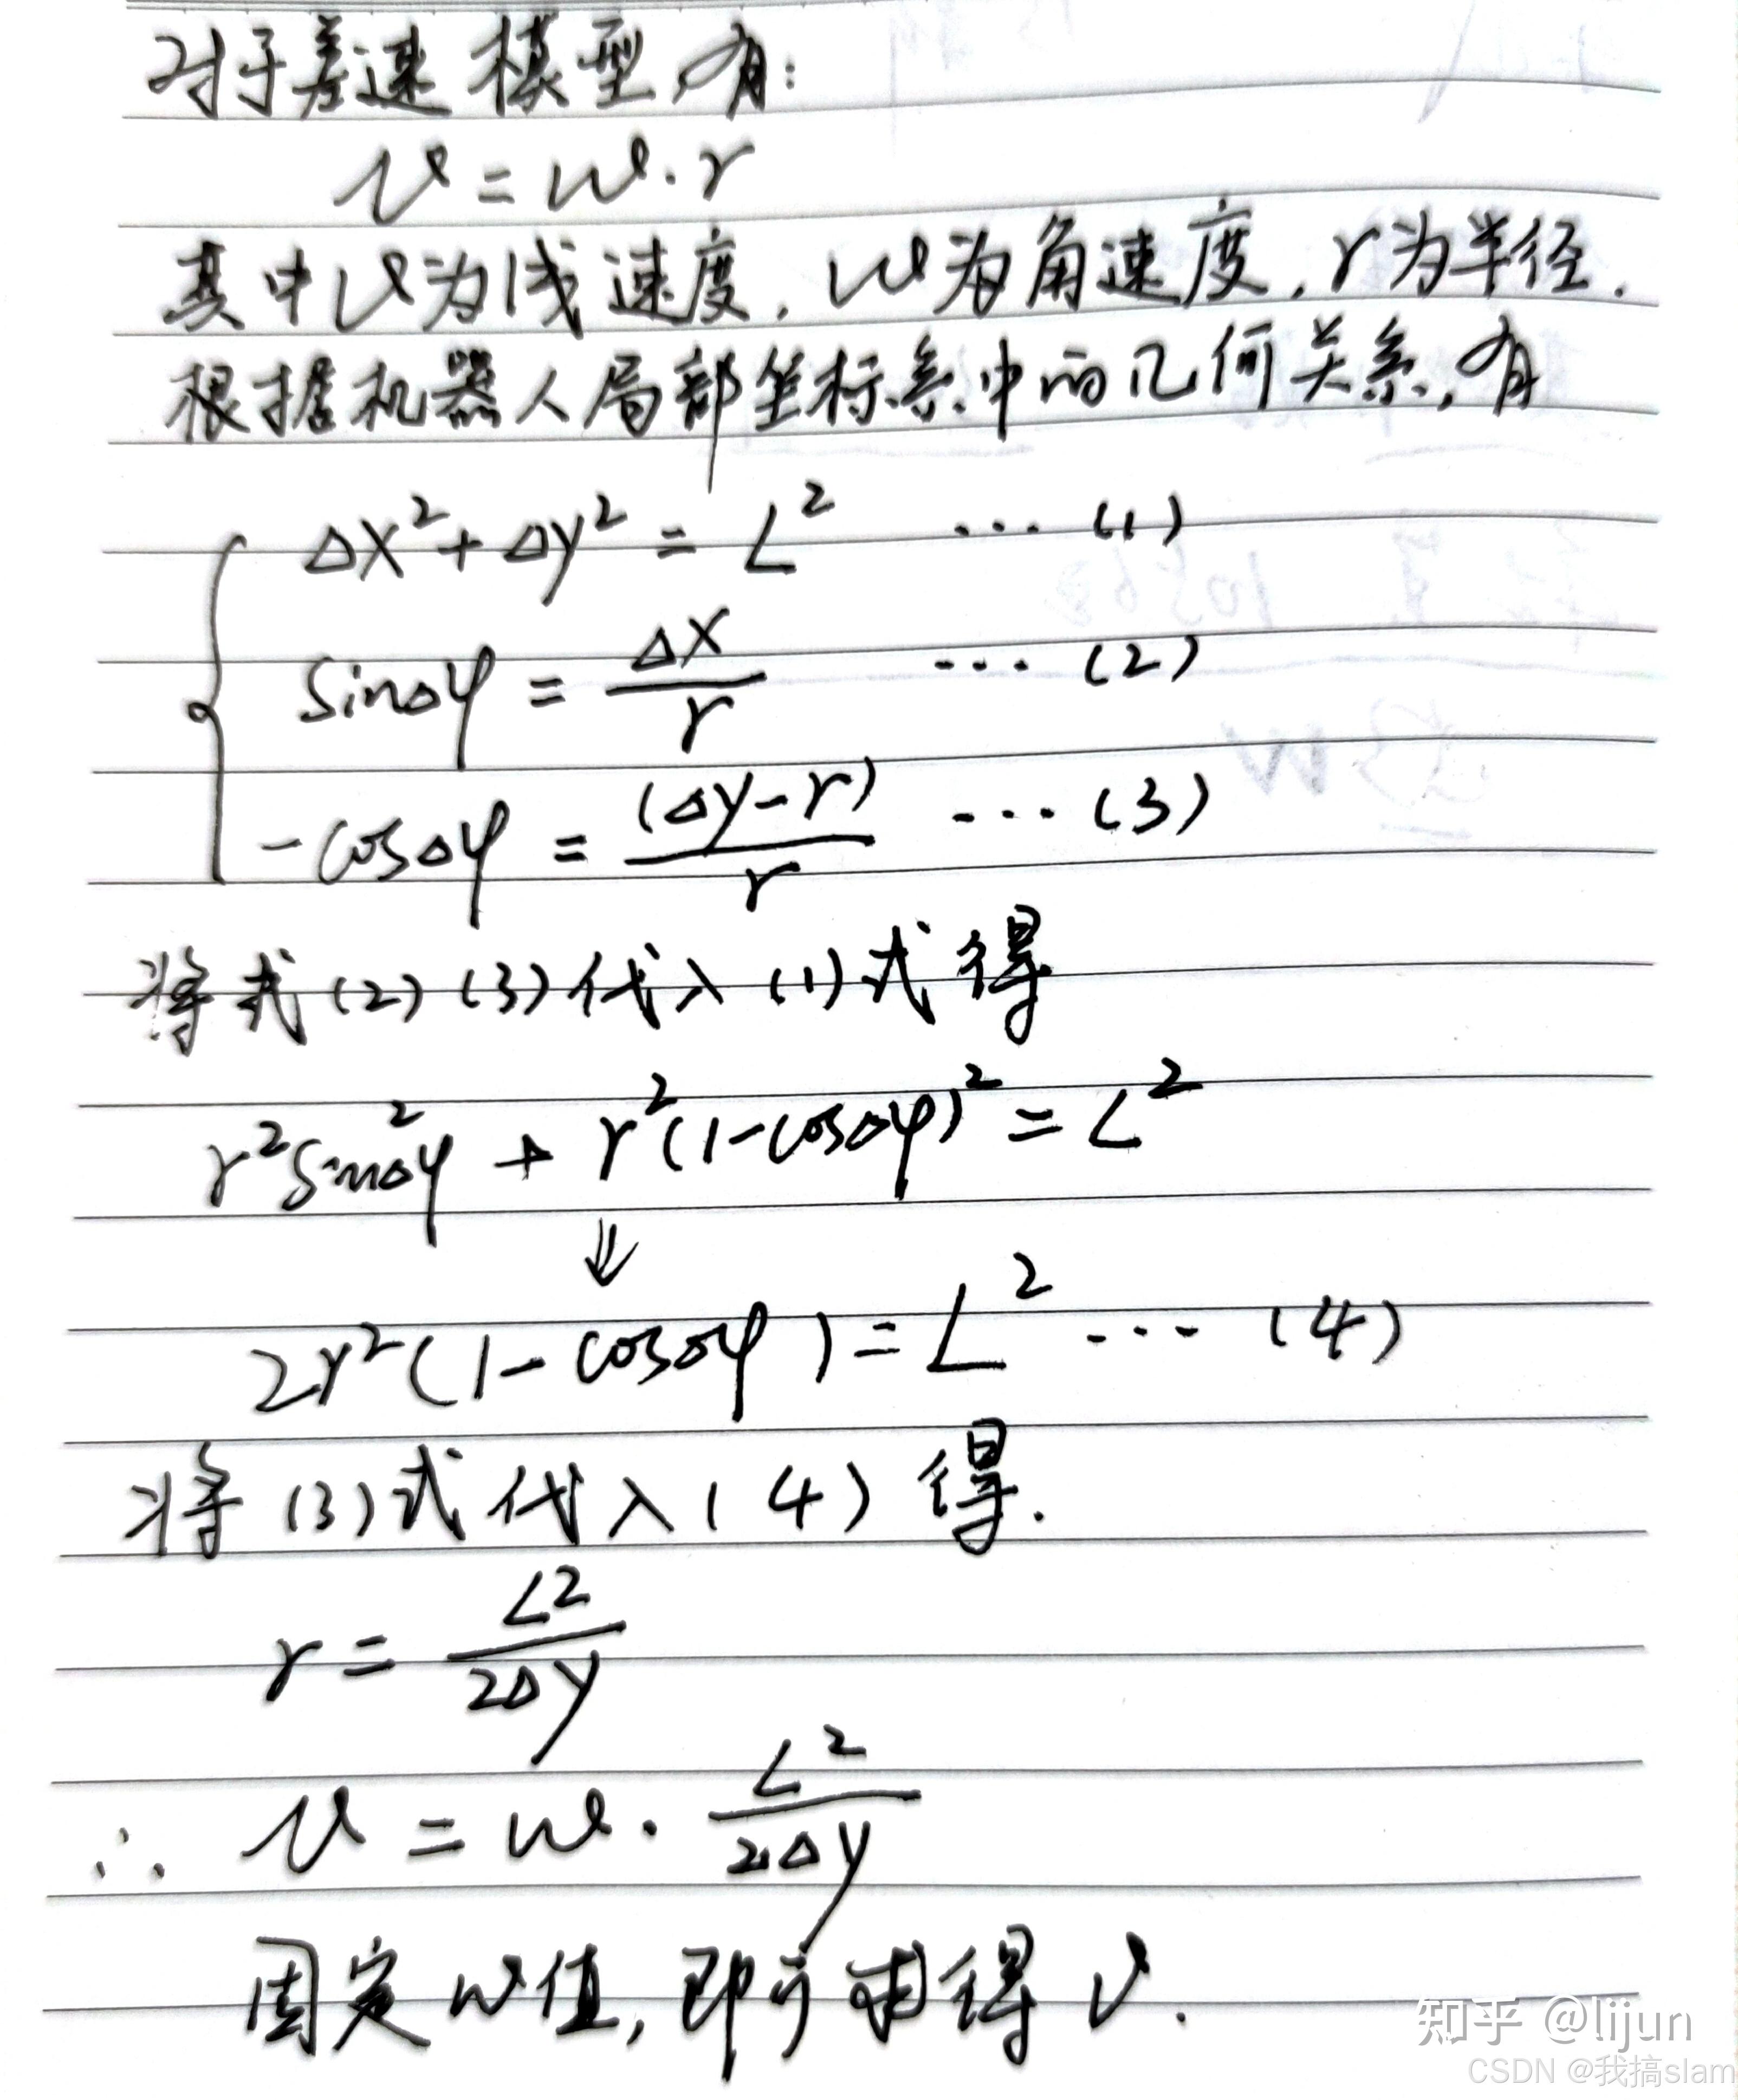 对于差速模型,有:
v = w · r
其中v为线速度, w为角速度, r为半径.
根据机器人局部坐标系中的几何关系, 有
Δx² + Δy² = L² ··· (1)
sinΔφ = Δx / r ··· (2)
-cosΔφ = (Δy-r) / r ··· (3)
将式(2)(3)代入(1)式得
r²sin²Δφ + r²(1-cosΔφ)² = L²
⇓
2r²(1-cosΔφ) = L² ··· (4)
将(3)式代入(4)得.
r = L² / 2Δy
∴ v = w · L² / 2Δy
固定w值, 即可求得v.
知乎 @lijun
CSDN @我搞slam